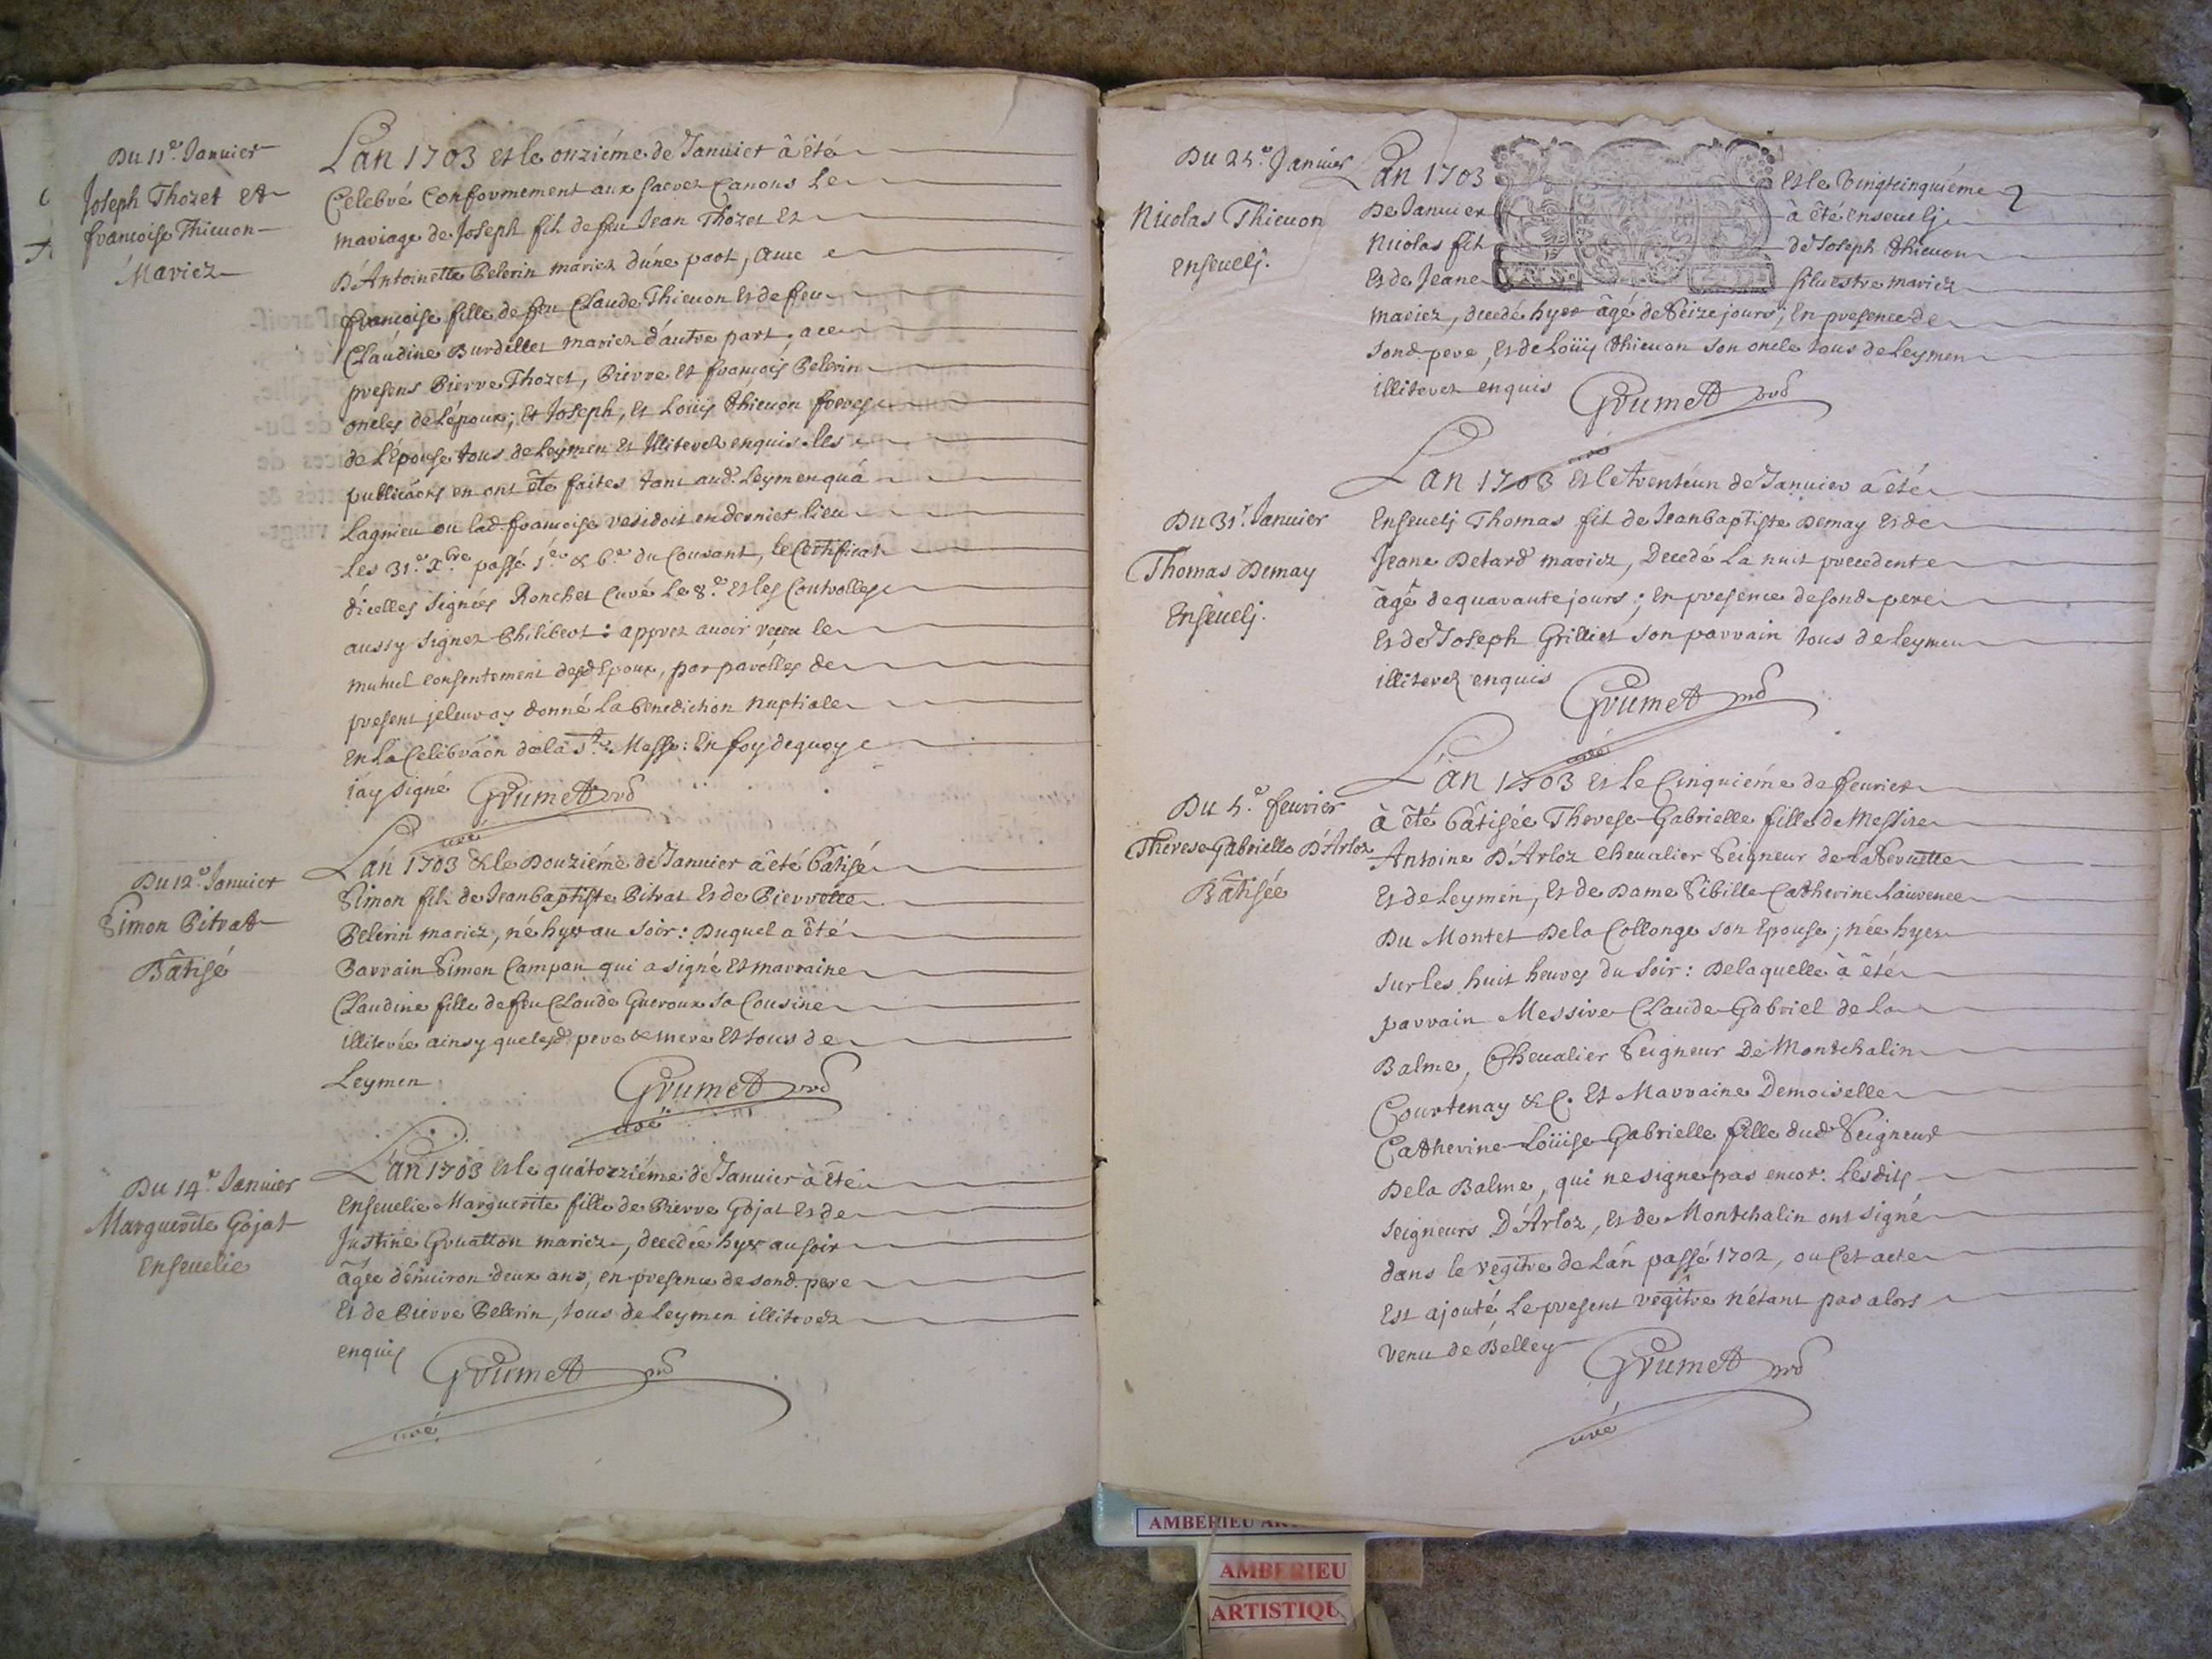 Du 11.e Janvier
Joseph Thozet et
francoise Thieuon
Mariez
Lan 1703 et le onziéme de Januier â été
Celebré Conformement aux sacrez Canons Le
mariage de Joseph fils de feu Jean Thozet Et
D'Antoinette Pelerin mariez d'une part, Auec
francoise fille de feu Claude Thieuon Et de feu
Claudine Burdellet mariez d'autre part, a ce
presens Pierre Thozet, Pierre Et françois Pelerin
oncles de L'époux; Et Joseph, et Loüis thieuon freres
de L'Epouse tous de Leymen Et Illiterez enquis. Les
publicâons en ont êté faites tant aud. Leymen qu'à
Lagnieu ou lad. francoise residoit en dernier lieu
Les 31.e Xbre passé 1.er & 6.e du Courant, le Certificat
d'icelles signées Ronchet Curé Le 8.e Et les Controlles
aussy signez Philibert: apprez auoir reçeu le
mutuel consentement desd. Epoux, par parolles de
present je leur ay donné La benediction nuptiale
en La Celebrâon de la Ste Messe: En foy de quoy
j'ay signé Grumet
curé
Du 12.e Januier
Simon Pitrat
Bâtisé
Lan 1703 & le Douziéme de Januier â êté bâtisé
Simon fils de Jean baptiste Pitrat Et de Pierrette
Pelerin mariez, né hyer au soir: Duquel a êté
Parrain Simon Campan qui a signé Et marraine
Claudine fille de feu Claude Gueroux sa Cousine
illiterée ainsy que lesd. pere & mere Et tous de
Leymen
Grumet
curé
Du 14.e Januier
Marguerite Gojat
Enseuelie
Lan 1703 et le quatorziéme de Januier à êté
Enseuelie Marguerite fille de Pierre Gojat Et de
Justine Gruatton mariez, decedée hyer au soir
âgée d'enuiron deux ans, en presence de sond. pere
Et de Pierre Pelerin, tous de Leymen illiterez
enquis
Grumet
curé
Du 25.e Januier
Nicolas Thieuon
Enseuelj.
Lan 1703 Et le Vingtcinquiéme 2
De Januier à êté enseuelj
Nicolas fils de Joseph thieuon
Et de Jeane Siluestre mariez
mariez, decedé hyer âgé de Seize jours; En presence de
sond. pere, Et de Loüis thieuon son oncle tous de Leymen
illiterez enquis
Grumet
curé
Du 31.e Januier
Thomas Demay
Enseuelj.
Lan 1703 Et le trenteun de Januier â êté
Enseuelj Thomas fils de Jean baptiste Demay Et de
Jeane Detard mariez, Decedé La nuit precedente
âgé de quarante jours; En presence de sond. pere
Et de Joseph Grilliet son parrain tous de Leymen
illiterez enquis
Grumet
curé
Du 5.e feurier
Therese Gabrielle D'Arloz
Bâtisée
L'an 1703 Et le Cinquiéme de feurier
à êté bâtisée Therese Gabrielle fille de Messire
Antoine D'Arloz Cheualier Seigneur de La Seruette
Et de Leymen, Et de Dame Sibille Catherine Laurence
Du Montet De la Collonge son Epouse; née hyer
sur les huit heures du soir: De laquelle â êté
parrain Messire Claude Gabriel de La
Balme, Cheualier Seigneur De Montchalin
Courtenay &C. Et Marraine Demoiselle
Catherine Loüise Gabrielle fille dud. Seigneur
De la Balme, qui ne signe pas encor. Lesdits
seigneurs D'Arloz, Et de Montchalin ont signé
dans le regître de L'an passé 1702, ou Cet acte
Est ajouté Le present regître n'étant pas alors
Venu de Belley
Grumet
curé
AMBERIEU
AMBERIEU
ARTISTIQU